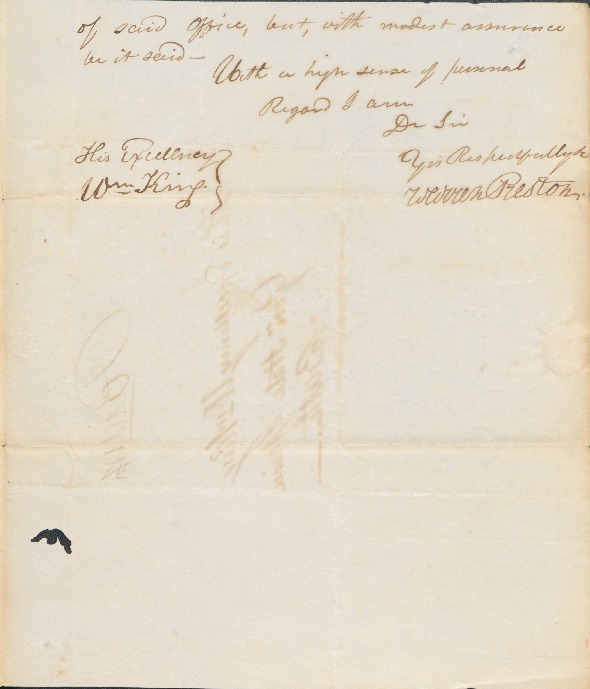 of said Office, but, with modest assurance
be it said—
With a high sense of personal
Regard I am
Dr Sir
Yrs Respectfully &c
His Excellency }
Wm King. }
Warren Preston.